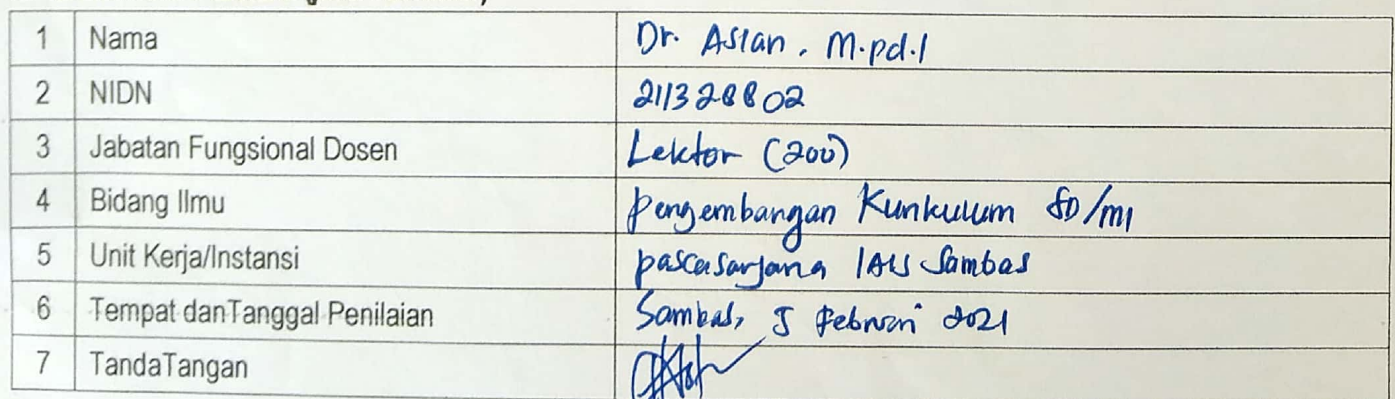 1 Nama Dr. Aslan, M.pd.I
2 NIDN 2113288802
3 Jabatan Fungsional Dosen Lektor (200)
4 Bidang Ilmu pengembangan Kurikulum SD/MI
5 Unit Kerja/Instansi pascasarjana IAIS Sambas
6 Tempat danTanggal Penilaian Sambas, 5 Februari 2021
7 TandaTangan